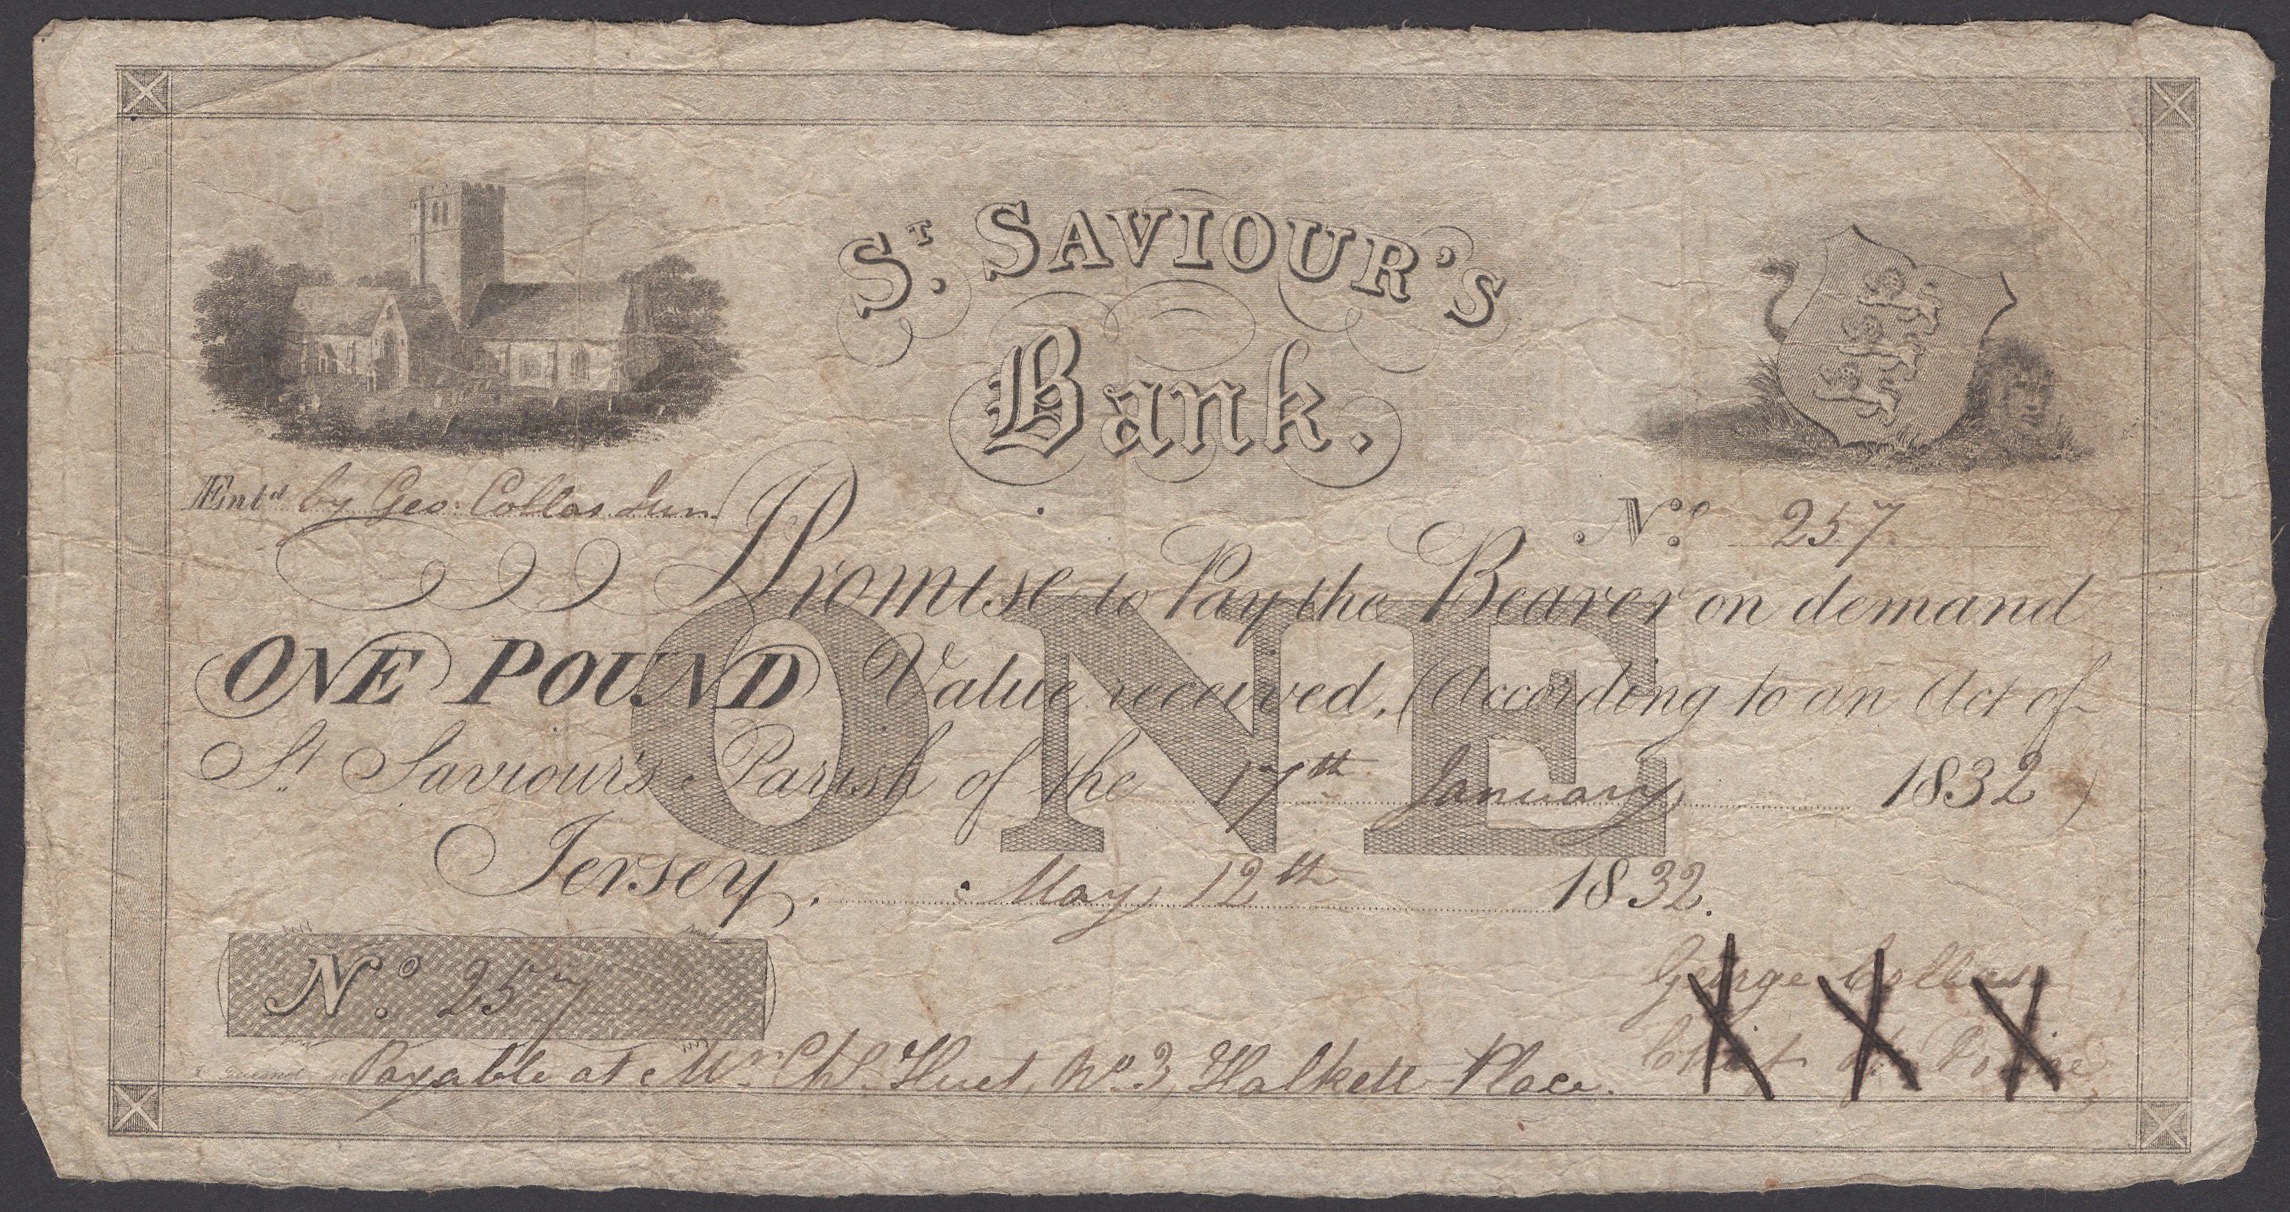 ST. SAVIOUR'S
Bank.
Entd by Geo: Collas Jun.
No. 257
I Promise to Pay the Bearer on demand
ONE POUND Value received, (According to an Act of
St. Saviour's Parish of the 17th January 1832)
ONE
Jersey, May 12th 1832.
No. 257
George Collas
Chief of Police
Payable at Mr. Chs. Huet, No. 3, Halkett Place.